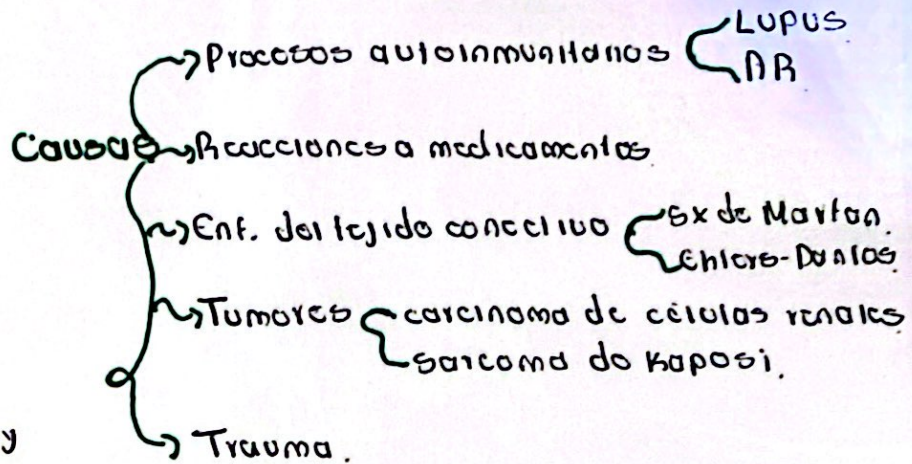 LUPUS
Procesos autoinmunitarios
AR
Causas
Reacciones a medicamentos
Enf. del tejido conectivo
Sx de Marfan.
Ehlers-Danlos.
Tumores
carcinoma de células renales
Sarcoma de Kaposi.
y
Trauma.